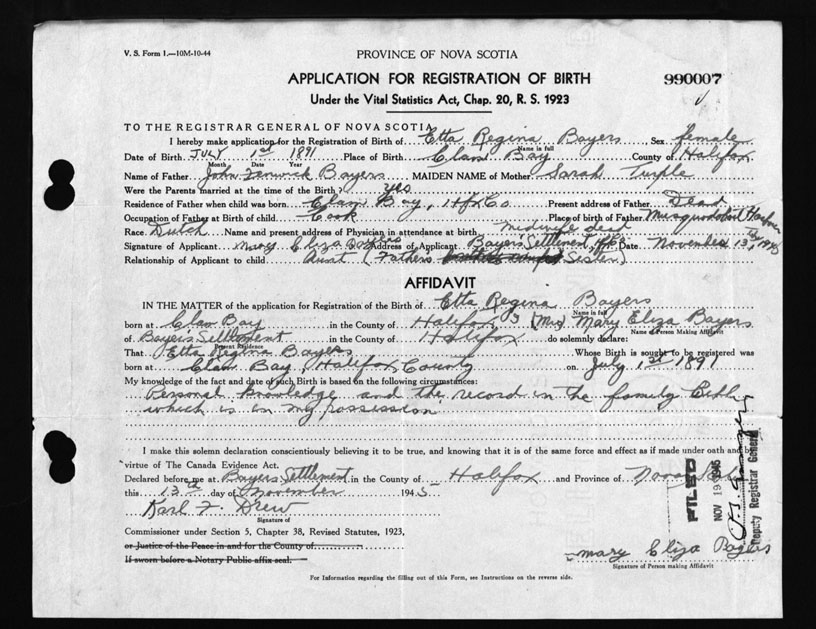 V. S. Form 1.—10M-10-44
PROVINCE OF NOVA SCOTIA
APPLICATION FOR REGISTRATION OF BIRTH
990007
Under the Vital Statistics Act, Chap. 20, R. S. 1923
TO THE REGISTRAR GENERAL OF NOVA SCOTIA
I hereby make application for the Registration of Birth of Etta Regina Bayers Sex female
Name in full
Date of Birth July 1st 1891 Place of Birth Clam Bay County of Halifax
Month Date Year
Name of Father John Fenwick Bayers MAIDEN NAME of Mother Sarah Turple
Were the Parents married at the time of the Birth? yes
Residence of Father when child was born Clam Bay, Hfx Co Present address of Father Dead
Occupation of Father at Birth of child Cook Place of birth of Father Musquodoboit Harbour
Race Dutch Name and present address of Physician in attendance at birth midwife dead
Signature of Applicant Mary Eliza Bayers Address of Applicant Bayers Settlement, Hfx Co Date November 13th, 1945
Relationship of Applicant to child Aunt (Fathers Sister)
AFFIDAVIT
IN THE MATTER of the application for Registration of the Birth of Etta Regina Bayers
Name in full
born at Clam Bay in the County of Halifax I (Mrs) Mary Eliza Bayers
Name of Person Making Affidavit
of Bayers Settlement in the County of Halifax do solemnly declare:
Present Residence
That Etta Regina Bayers Whose Birth is sought to be registered was
born at Clam Bay, Halifax County on July 1st 1891
My knowledge of the fact and date of such Birth is based on the following circumstances:
Personal knowledge and the record in the family Bible
which is in my possession
I make this solemn declaration conscientiously believing it to be true, and knowing that it is of the same force and effect as if made under oath and by
virtue of The Canada Evidence Act.
Declared before me at Bayers Settlement in the County of Halifax and Province of Nova Scotia
this 13th day of November 1945
Karl F. Drew
Signature of
Commissioner under Section 5, Chapter 38, Revised Statutes, 1923,
or Justice of the Peace in and for the County of
If sworn before a Notary Public affix seal.
Mary Eliza Bayers
Signature of Person making Affidavit
For Information regarding the filling out of this Form, see Instructions on the reverse side.
FILED
NOV 19 1945
Deputy Registrar General